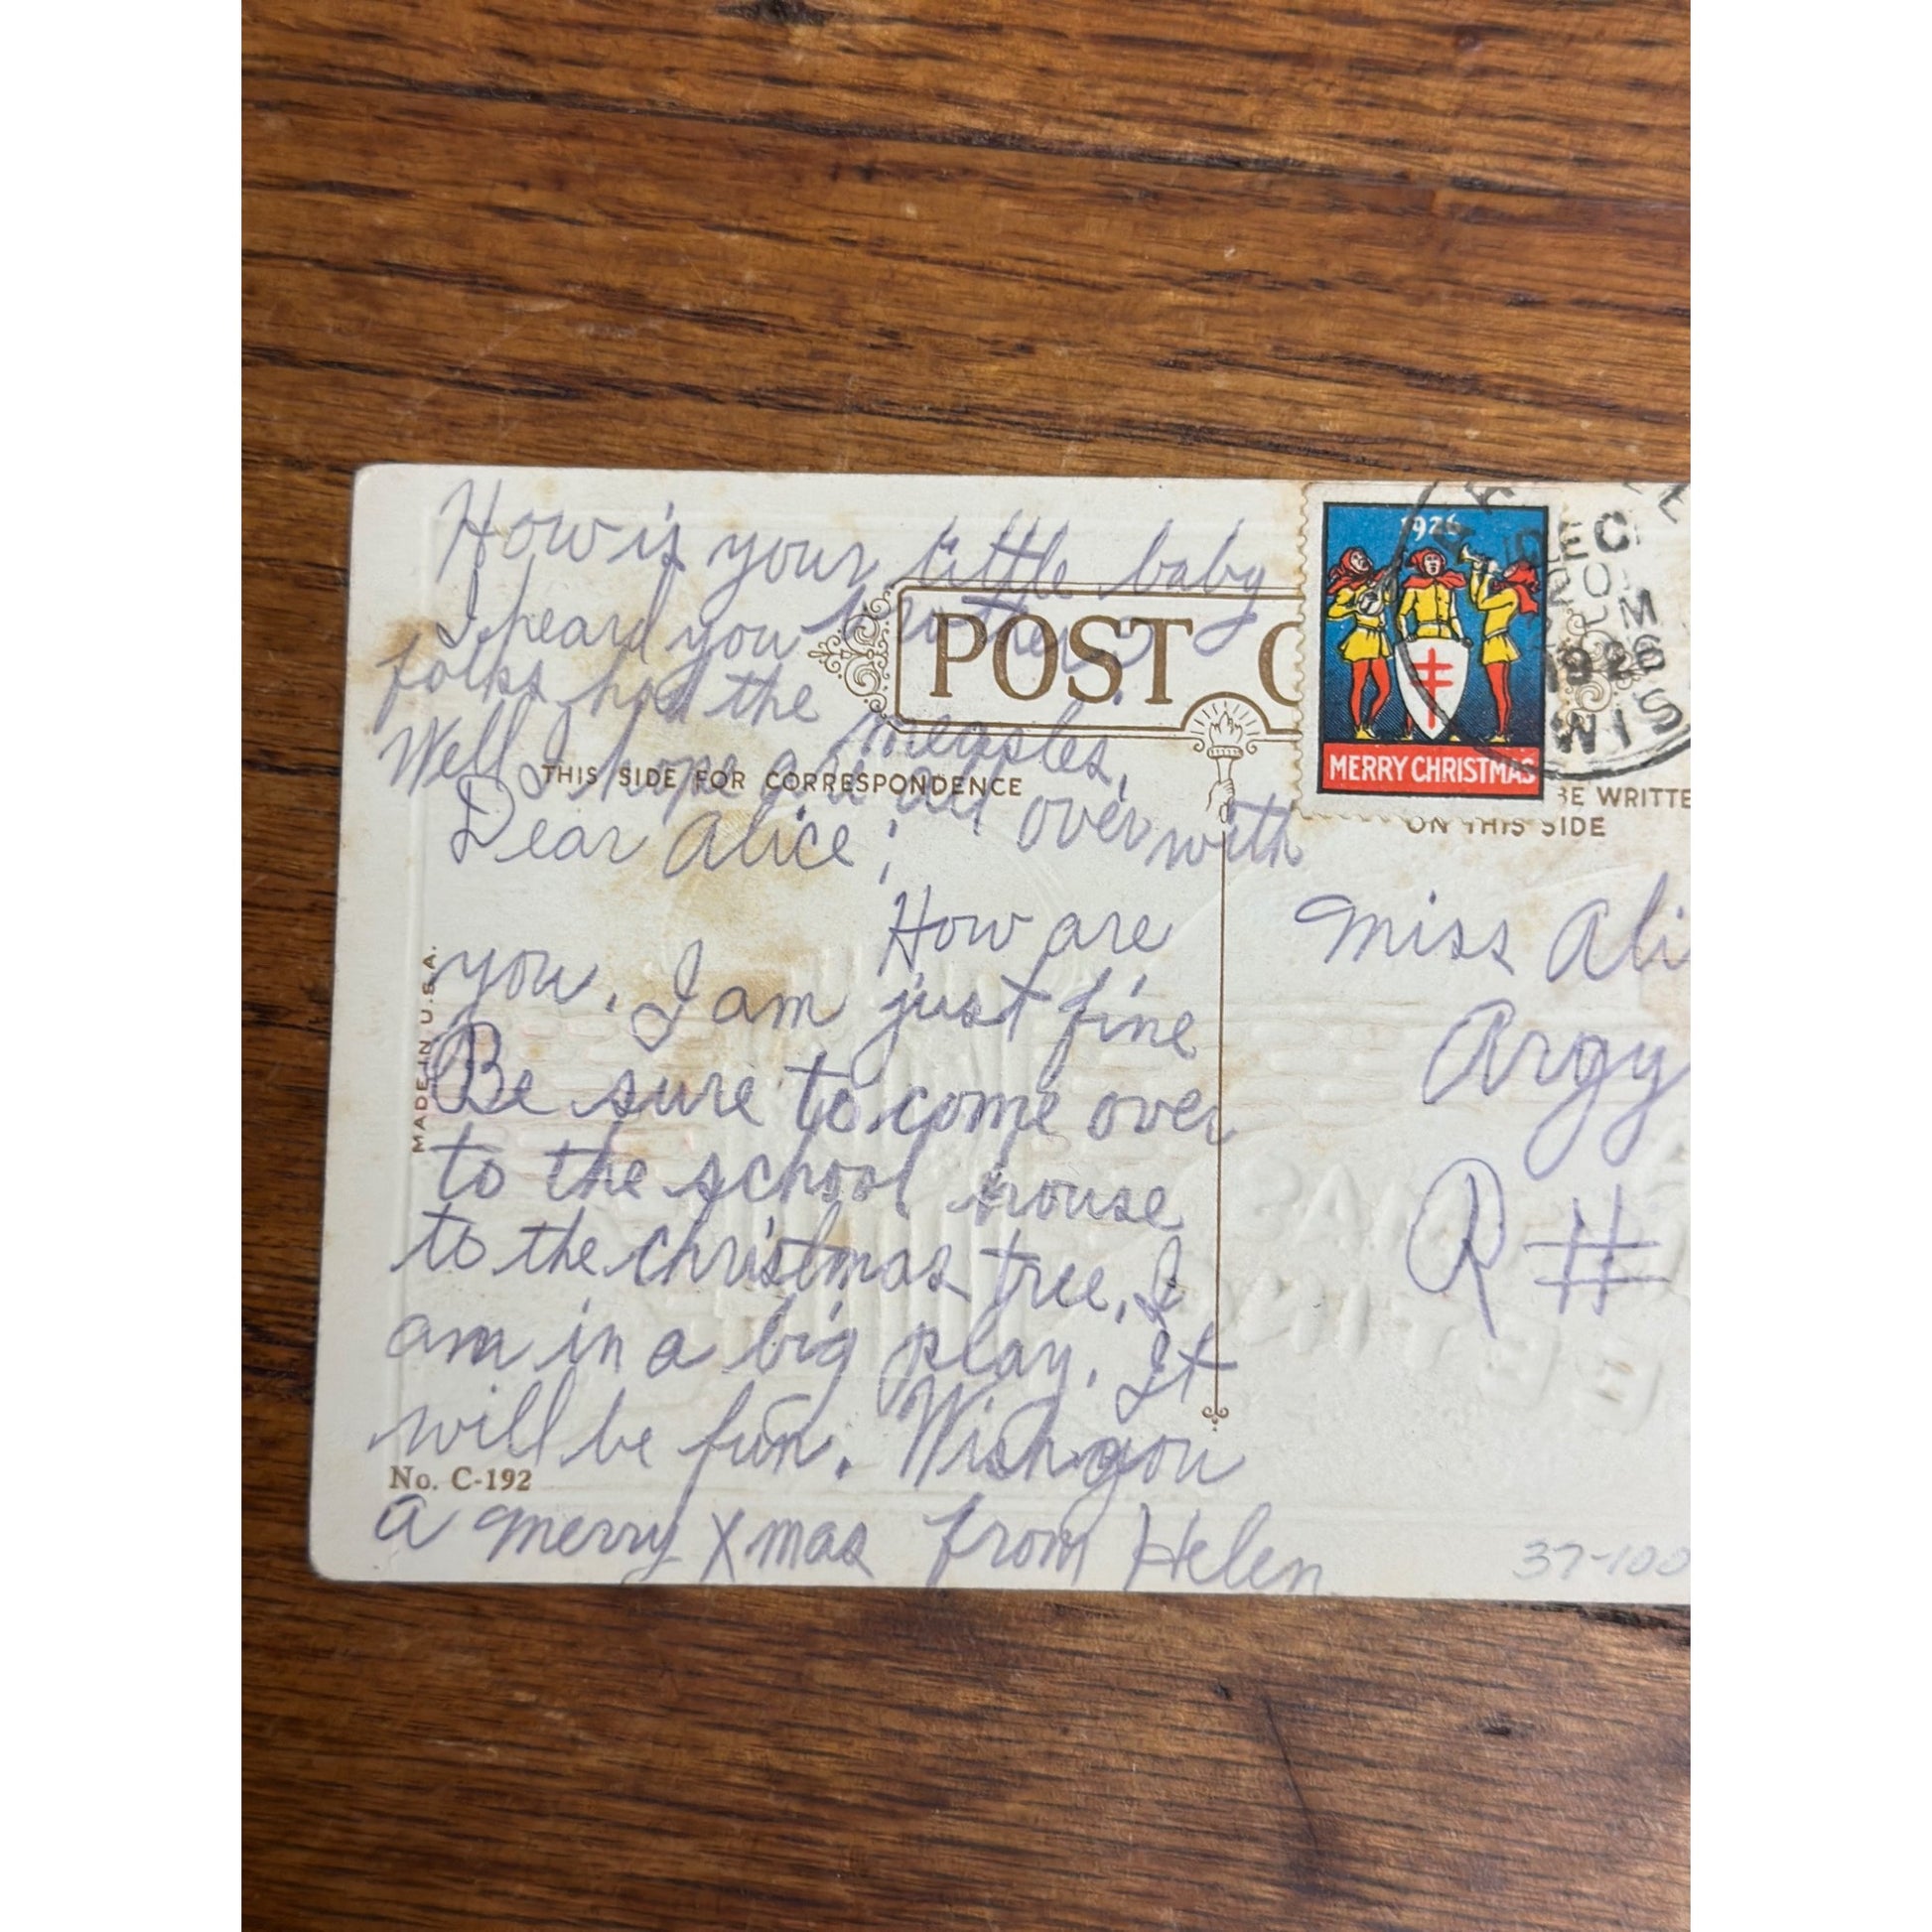 How is your little baby
brother.
I heard you
folks had the measles.
Well I hope are all over with
POST C
THIS SIDE FOR CORRESPONDENCE
Dear Alice;
How are
you. I am just fine
Be sure to come over
to the school house
to the christmas tree. I
am in a big play. It
will be fun. Wish you
a merry Xmas from Helen
MADE IN U.S.A.
No. C-192
1926
MERRY CHRISTMAS
DEC
20
PM
1926
WIS
BE WRITTE
ON THIS SIDE
Miss Ali
Argy
R #
37-100